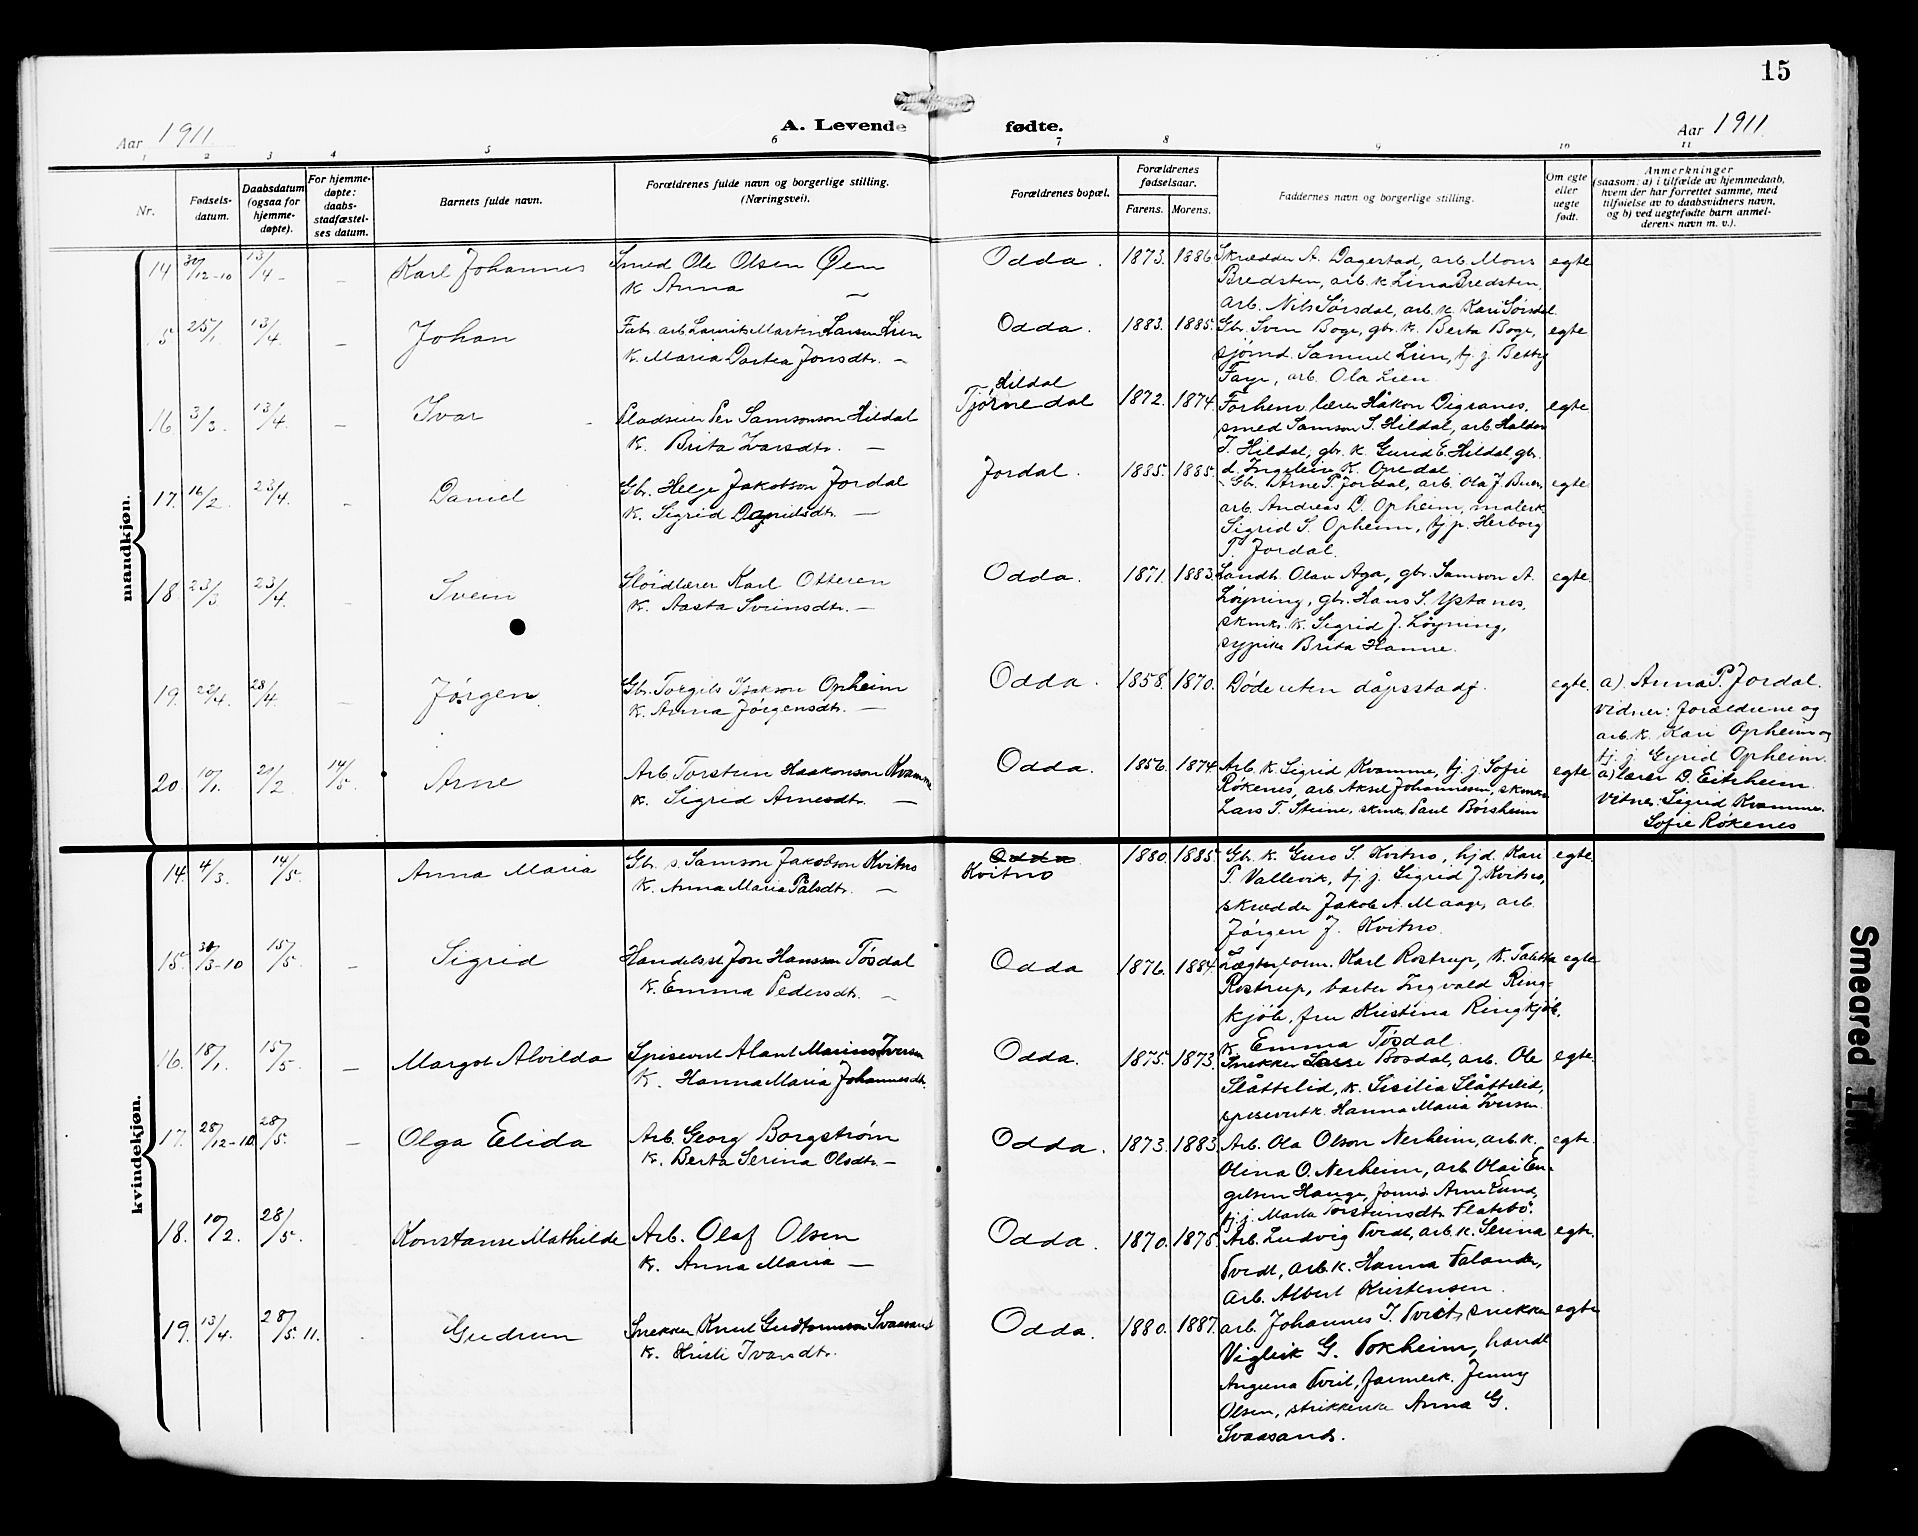 15
Aar 1911.
A. Levende fødte.
Aar 1911.
1 2 3 4 5 6 7 8 9 10 11
Nr.
Fødsels-
datum.
Daabsdatum
(ogsaa for
hjemme-
døpte).
For hjemme-
døpte:
daabs-
stadfæstel-
ses datum.
Barnets fulde navn.
Forældrenes fulde navn og borgerlige stilling.
(Næringsvei).
Forældrenes bopæl.
Forældrenes
fødselsaar.
Farens. Morens.
Faddernes navn og borgerlige stilling.
Om egte
eller
uegte
født.
Anmerkninger
(saasom: a) i tilfælde av hjemmedaab,
hvem der har forrettet samme, med
tilføielse av to daabsvidners navn,
og b) ved uegtefødte barn anmel-
derens navn m. v.).
mandkjøn.
14 30/12-10 13/4 - - Karl Johannes Smed Ole Olsen Øen Odda. 1873. 1886 Skrædder A. Dagestad, arb. Mons egte
k Anna — Bredsten, arb. k. Lina Bredsten,
arb. Nils Sørsdal, arb. k. Kari Sørsdal
15 25/1 13/4 - Johan Fabr. arb. Lauritz Martin Larsen Lien Odda. 1883. 1885. Gbr. Sven Boge, gbr. k. Berta Boge, egte
k. Maria Dortea Jonsdtr. — sjømd. Samuel Lien, tj. j. Betsy
Faye, arb. Ola Lien.
16. 3/3. 13/4. - Ivar Pladseier Per Samsonson Hildal Hildal Tjørnedal 1872. 1874. Forhenv. lærer Håkon Digranes, egte
k. Brita Ivarsdtr. — smed Samson S. Hildal, arb. Haldor
T. Hildal, gbr. k Gurid E. Hildal, gbr.
d. Ingeleiv K. Opedal
17. 16/2. 23/4. - Daniel Gbr. Helge Jakobson Jordal Jordal. 1885. 1885. Gbr. Arne P. Jordal, arb. Ola J. Buer, egte
k. Sigrid Danielsdtr. — arb. Andreas D. Opheim, malerk.
Sigrid S. Opheim, tj. p. Herborg
T. Jordal.
18. 23/3 23/4. - Svein Sløidlærer Karl Otteren Odda. 1871. 1883. Landh. Olav Aga, gbr. Samson A. egte
k. Aasta Sveinsdtr. — Løyning, gbr. Hans S. Ystanes,
k. Sigrid J. Løyning,
sypike Brita Hamre.
19. 22/4. 28/4. - Jørgen. Gbr. Torgils Isakson Opheim Odda. 1858. 1870. Døde uten dåpsstadf. egte. a). Anna P. Jordal.
k. Anna Jørgensdtr. — Vidner: forældrene og
arb. k. Kari Opheim og
tj. j. Gyrid Opheim.
20. 10/1. 21/2. 14/5. Arne Arb. Torstein Haakonson Kvamme Odda. 1856. 1874. Arb. k. Sigrid Kvamme, tj. j. Sofie egte a) lærer D. Eitrheim.
k. Sigrid Arnesdtr. — Røkenes, arb. Aksel Johannesen, Vitner: Sigrid Kvamme.
Lars T. Steine, Paul Børsheim Sofie Røkenes
kvindekjøn.
14. 4/3. 14/5. Anna Maria Gbr. s. Samson Jakobson Kvitno Odda Kvitno 1880. 1885. Gbr. k. Guro S. Kvitno, hjd. Kari egte
k. Anna Maria Pålsdtr. — T. Vallevik, tj. j. Sigrid J. Kvitno,
skrædder Jakob A. Maage, arb.
Jørgen J. Kvitno.
15. 30/3-10 15/5. - Sigrid Handelsst Jon Hansson Tøsdal Odda 1876. 1884. Karl Rostrup, k. egte
k. Emma Pedersdtr. — Rostrup, barber Ingvald Ring-
kjøb, fru Kristina Ringkjøb,
k. Emma Tøsdal.
16. 18/1. 15/5. - Margot Alvilda Spisevert Marius Iversen Odda. 1875. 1873. Snekker Lasse Bosdal, arb. Ole egte.
k. Hanna Maria Johannesdtr. Slåttelid, k. Sesilia Slåttelid,
spisevertk. Hanna Maria Iversen.
17. 28/12-10 28/5. - Olga Elida Arb. Georg Borgstrøm Odda. 1873. 1883. Arb. Ola Olson Nerheim, arb. k. egte.
k. Berta Serina Olsdtr. — Olina O. Nerheim, arb. Olai En-
gelsen Hauge, Arne Lund,
tj. j. Marta Torsteinsdtr. Flatebø.
18. 10/2. 28/5. Konstanse Mathilde Arb. Olaf Olsen Odda. 1870. 1875. Arb. Ludvig Tvedt, arb. k. Serina egte.
k. Anna Maria — Tvedt, arb. k. Hanna Falander,
arb. Albert Kristensen.
19. 13/4. 28/5.11. Gudrun Snekker Knut Gudtormson Svaasand Odda. 1880. 1887. arb. Johannes I. Tveit, snekker egte
k. Kristi Ivarsdtr. Vigleik G. Tokheim, handl.
Angunna Tveit, Jenny
Olsen, Anna G.
Svaasand.
Smeared